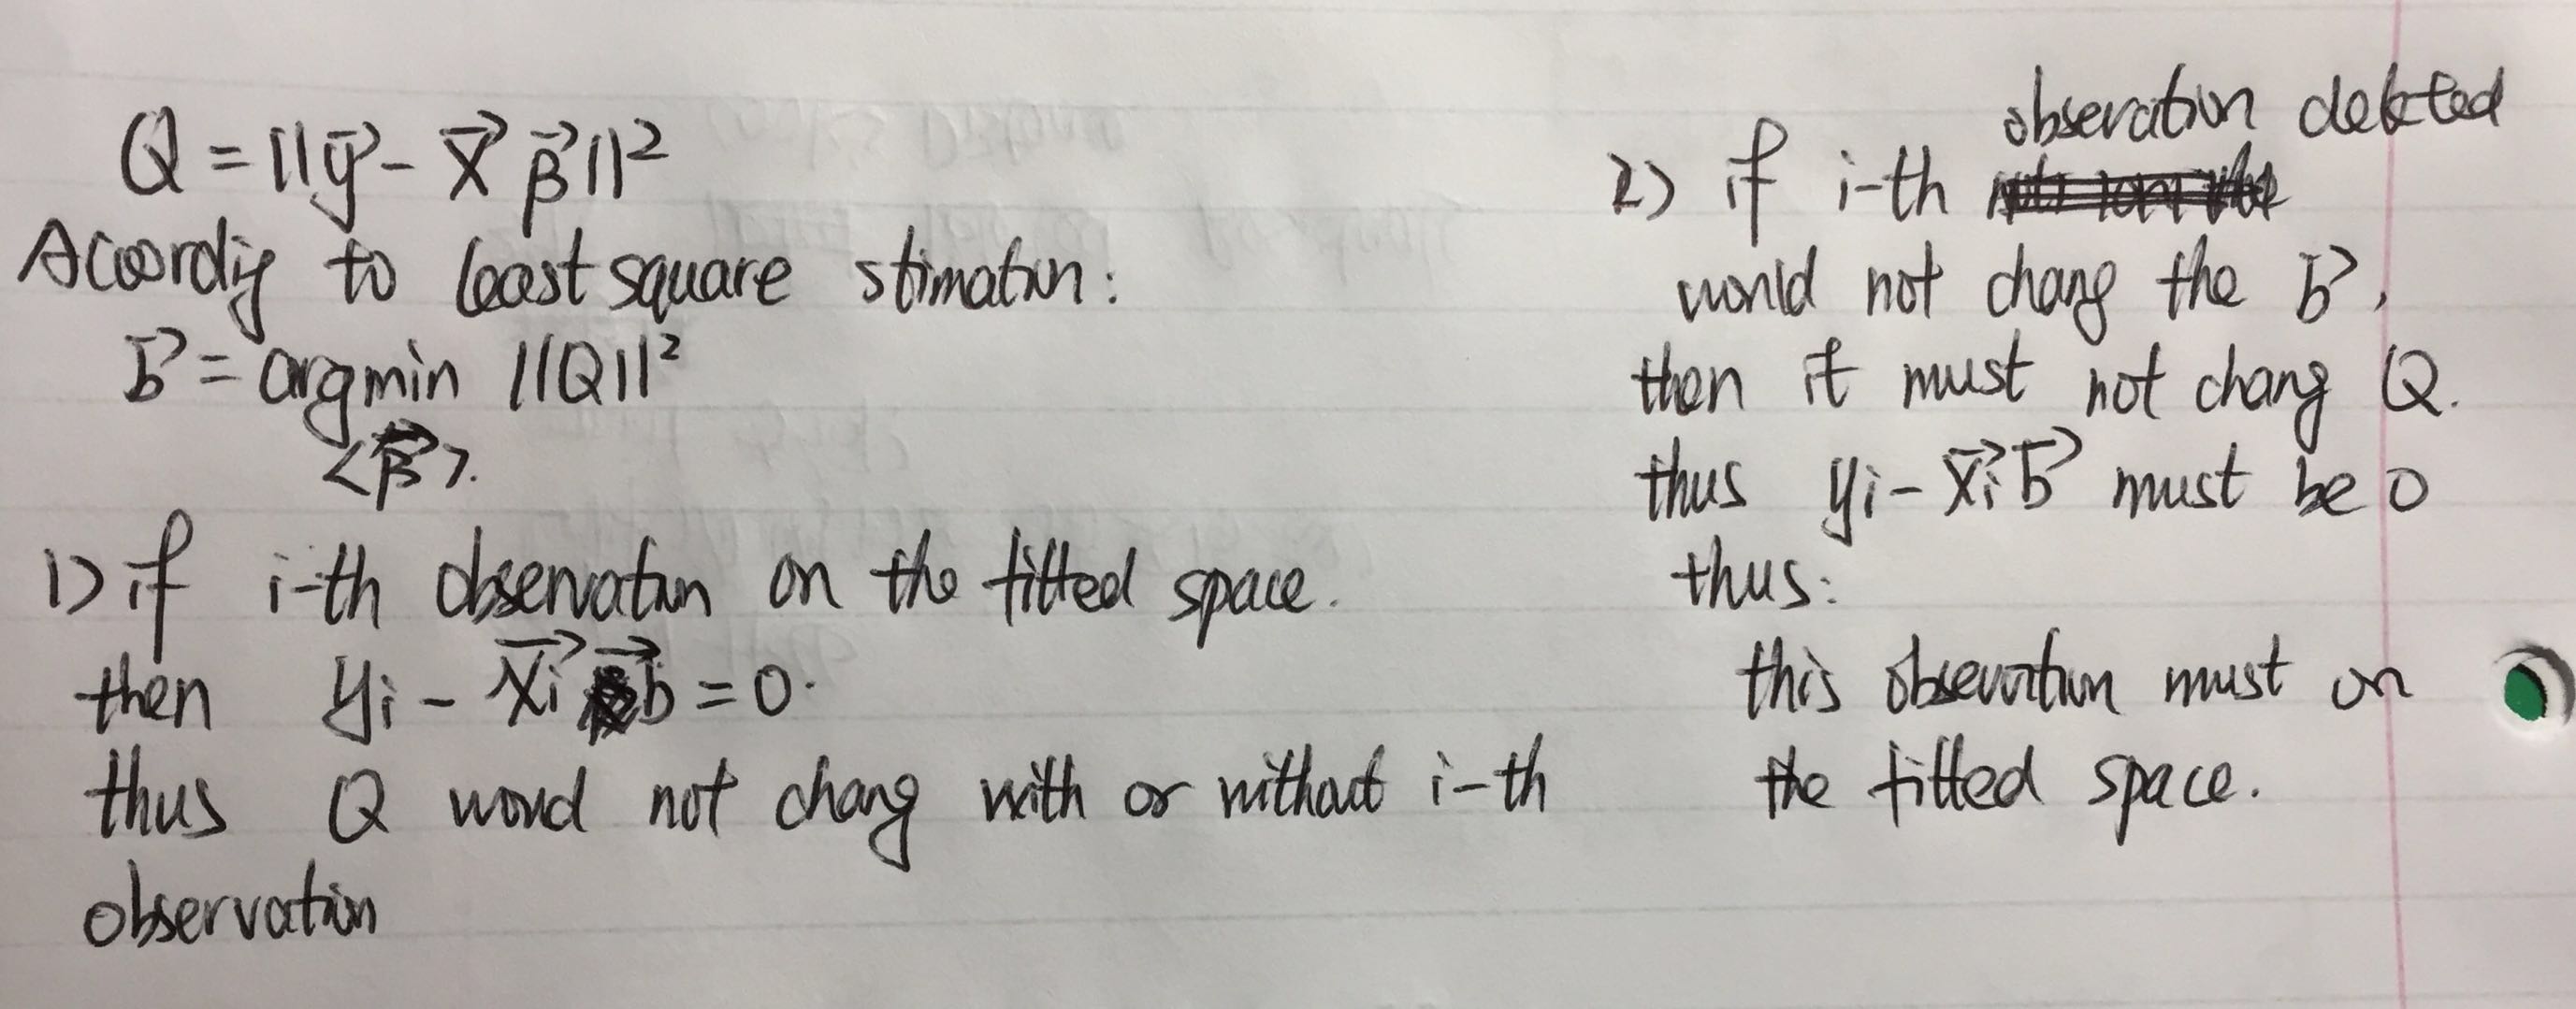 Q = ||y⃗ - X⃗ β⃗||²
Acoordig to least square stimation:
b⃗ = argmin ||Q||²
<β⃗>.
1) if i-th observation on the fitted space.
then yi - x⃗i b⃗ = 0.
thus Q would not chang with or without i-th
observation
2) if i-th observation deleted
would not chang the b⃗,
then it must not chang Q.
thus yi - x⃗i b⃗ must be 0
thus:
this observation must on
the fitted space.